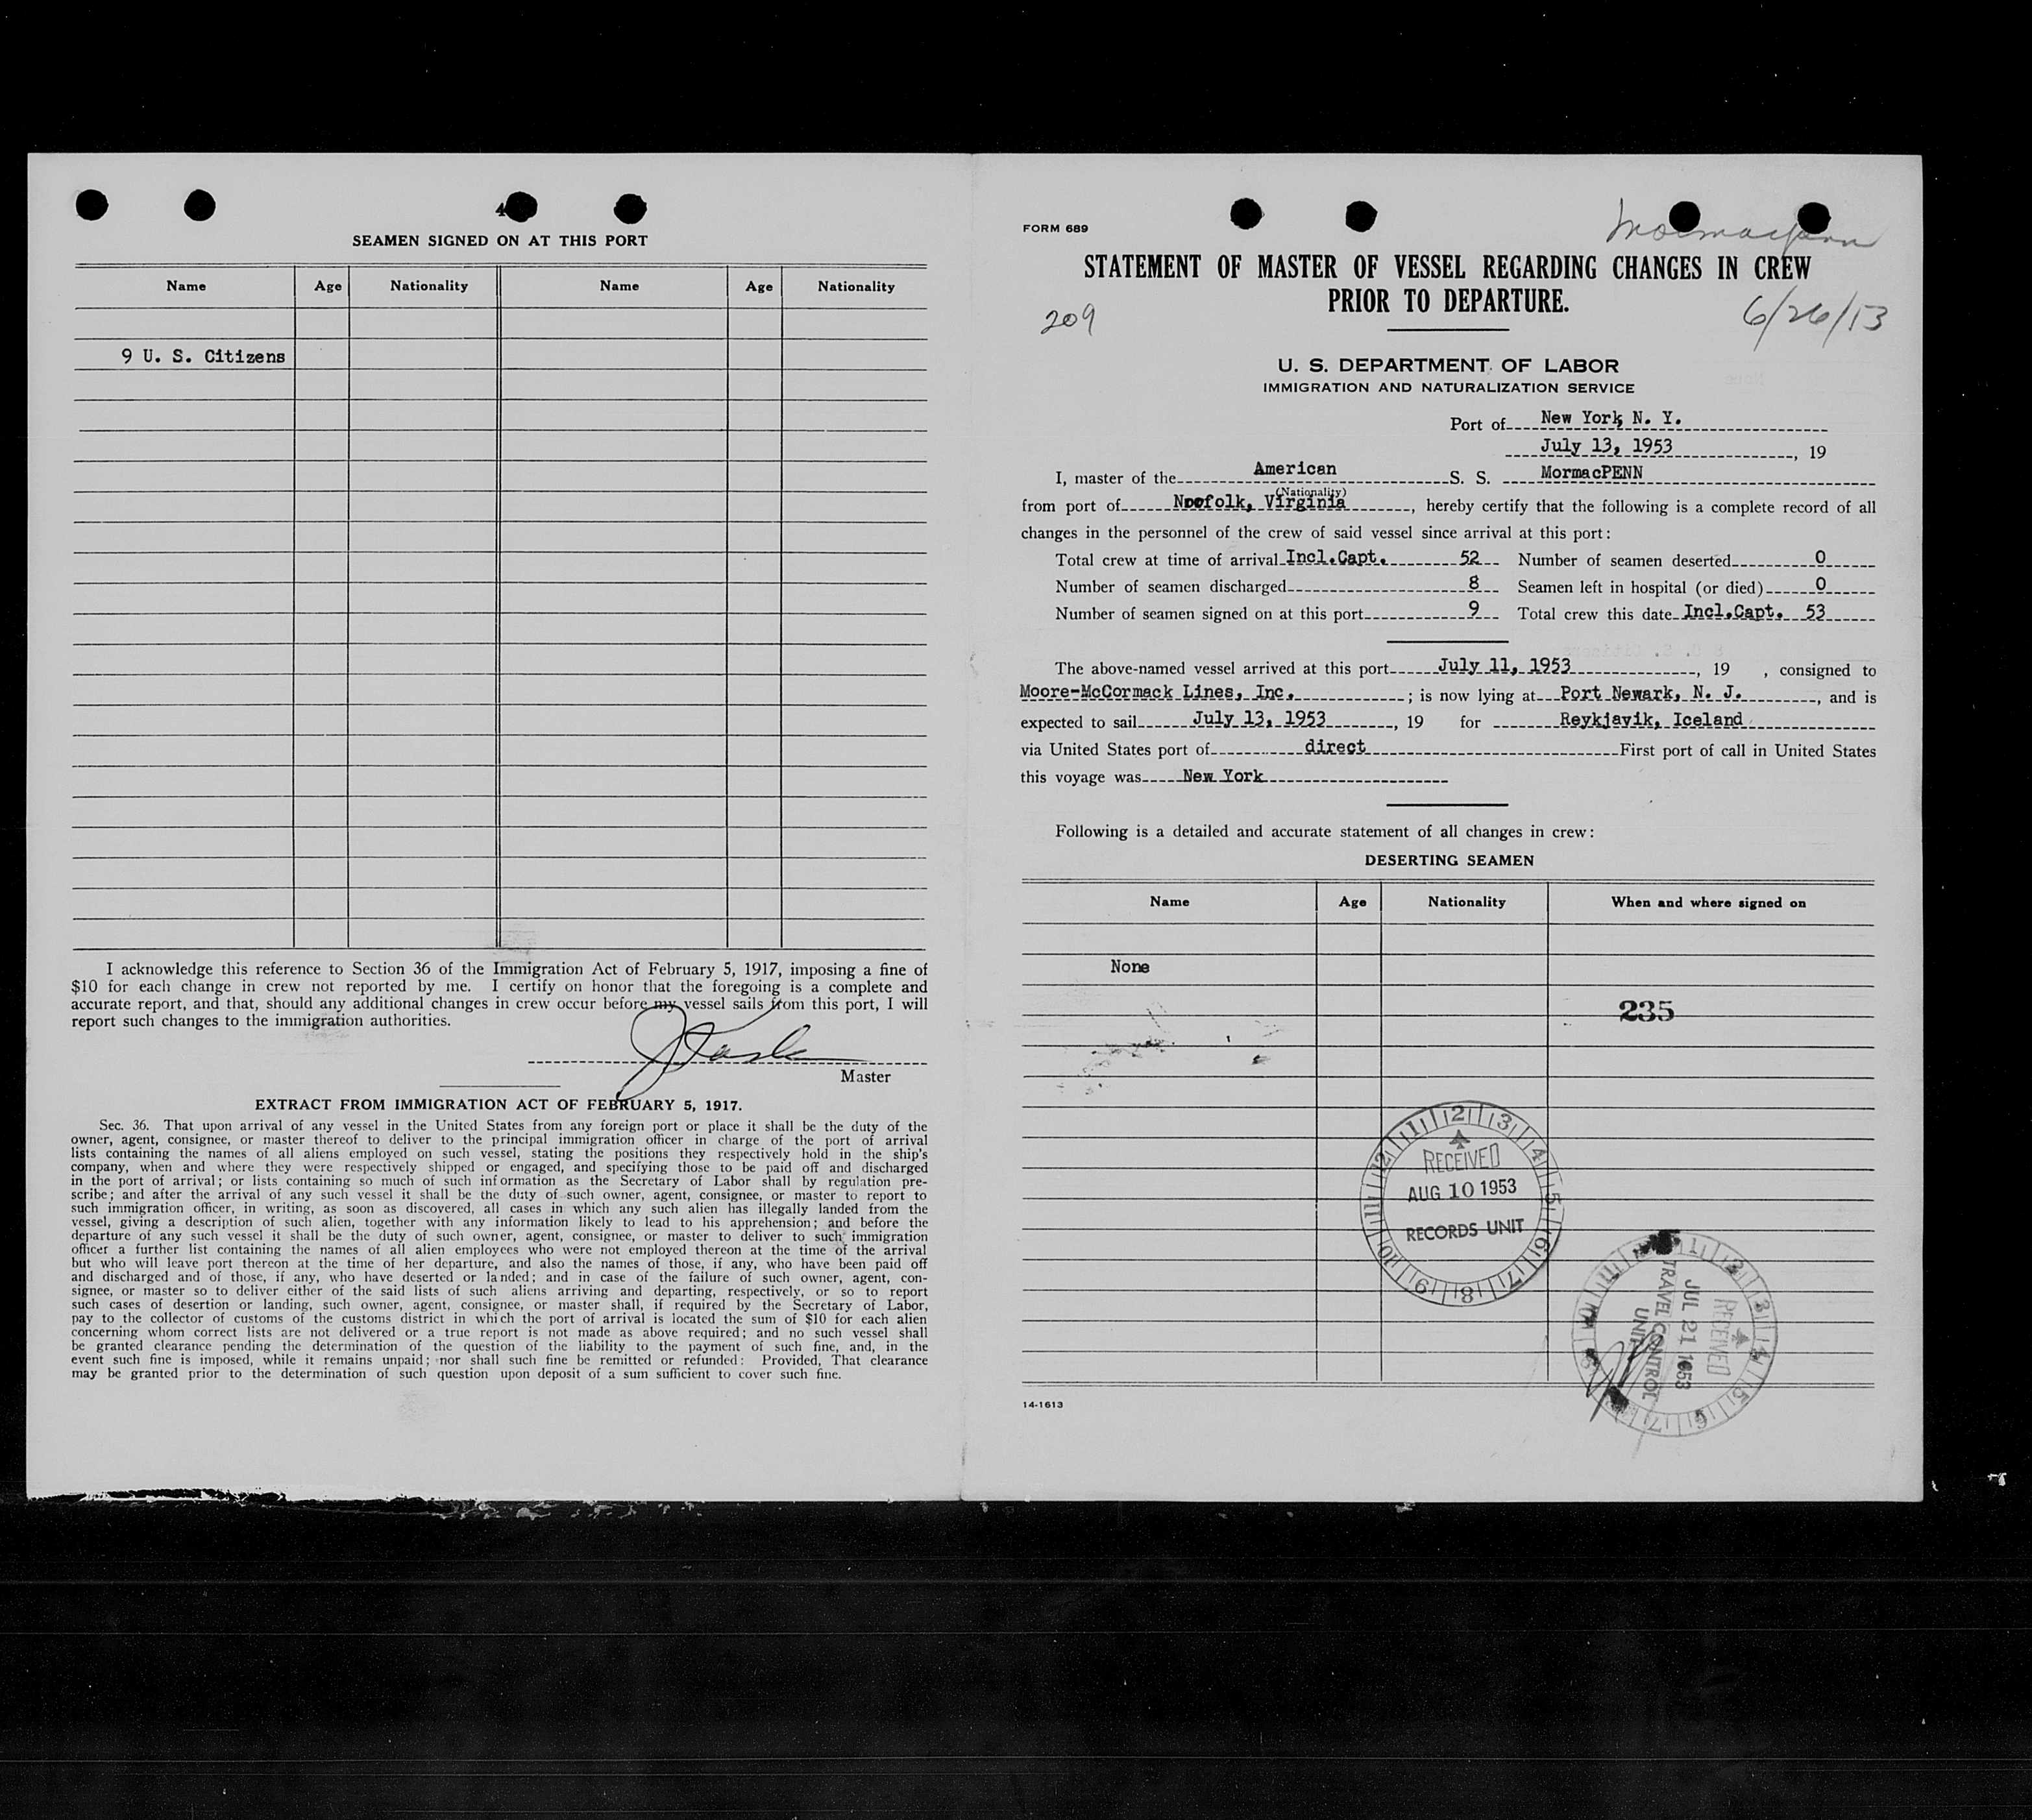 SEAMEN SIGNED ON AT THIS PORT
Name Age Nationality Name Age Nationality
9 U. S. Citizens
I acknowledge this reference to Section 36 of the Immigration Act of February 5, 1917, imposing a fine of
$10 for each change in crew not reported by me. I certify on honor that the foregoing is a complete and
accurate report, and that, should any additional changes in crew occur before my vessel sails from this port, I will
report such changes to the immigration authorities.
Master
EXTRACT FROM IMMIGRATION ACT OF FEBRUARY 5, 1917.
Sec. 36. That upon arrival of any vessel in the United States from any foreign port or place it shall be the duty of the
owner, agent, consignee, or master thereof to deliver to the principal immigration officer in charge of the port of arrival
lists containing the names of all aliens employed on such vessel, stating the positions they respectively hold in the ship's
company, when and where they were respectively shipped or engaged, and specifying those to be paid off and discharged
in the port of arrival; or lists containing so much of such information as the Secretary of Labor shall by regulation pre-
scribe; and after the arrival of any such vessel it shall be the duty of such owner, agent, consignee, or master to report to
such immigration officer, in writing, as soon as discovered, all cases in which any such alien has illegally landed from the
vessel, giving a description of such alien, together with any information likely to lead to his apprehension; and before the
departure of any such vessel it shall be the duty of such owner, agent, consignee, or master to deliver to such immigration
officer a further list containing the names of all alien employees who were not employed thereon at the time of the arrival
but who will leave port thereon at the time of her departure, and also the names of those, if any, who have been paid off
and discharged and of those, if any, who have deserted or landed; and in case of the failure of such owner, agent, con-
signee, or master so to deliver either of the said lists of such aliens arriving and departing, respectively, or so to report
such cases of desertion or landing, such owner, agent, consignee, or master shall, if required by the Secretary of Labor,
pay to the collector of customs of the customs district in which the port of arrival is located the sum of $10 for each alien
concerning whom correct lists are not delivered or a true report is not made as above required; and no such vessel shall
be granted clearance pending the determination of the question of the liability to the payment of such fine, and, in the
event such fine is imposed, while it remains unpaid; nor shall such fine be remitted or refunded: Provided, That clearance
may be granted prior to the determination of such question upon deposit of a sum sufficient to cover such fine.
FORM 689
Mormacpenn
STATEMENT OF MASTER OF VESSEL REGARDING CHANGES IN CREW
PRIOR TO DEPARTURE.
209
6/26/13
U. S. DEPARTMENT OF LABOR
IMMIGRATION AND NATURALIZATION SERVICE
Port of New York, N. Y.
July 13, 1953, 19
I, master of the American S. S. MormacPENN
(Nationality)
from port of Norfolk, Virginia, hereby certify that the following is a complete record of all
changes in the personnel of the crew of said vessel since arrival at this port:
Total crew at time of arrival Incl.Capt. 52 Number of seamen deserted 0
Number of seamen discharged 8 Seamen left in hospital (or died) 0
Number of seamen signed on at this port 9 Total crew this date Incl.Capt. 53
The above-named vessel arrived at this port July 11, 1953, 19 , consigned to
Moore-McCormack Lines, Inc. ; is now lying at Port Newark, N. J., and is
expected to sail July 13, 1953, 19 for Reykjavik, Iceland
via United States port of direct First port of call in United States
this voyage was New York
Following is a detailed and accurate statement of all changes in crew:
DESERTING SEAMEN
Name Age Nationality When and where signed on
None
235
RECEIVED
AUG 10 1953
RECORDS UNIT
RECEIVED
JUL 21 1953
TRAVEL CONTROL
UNIT
14-1613